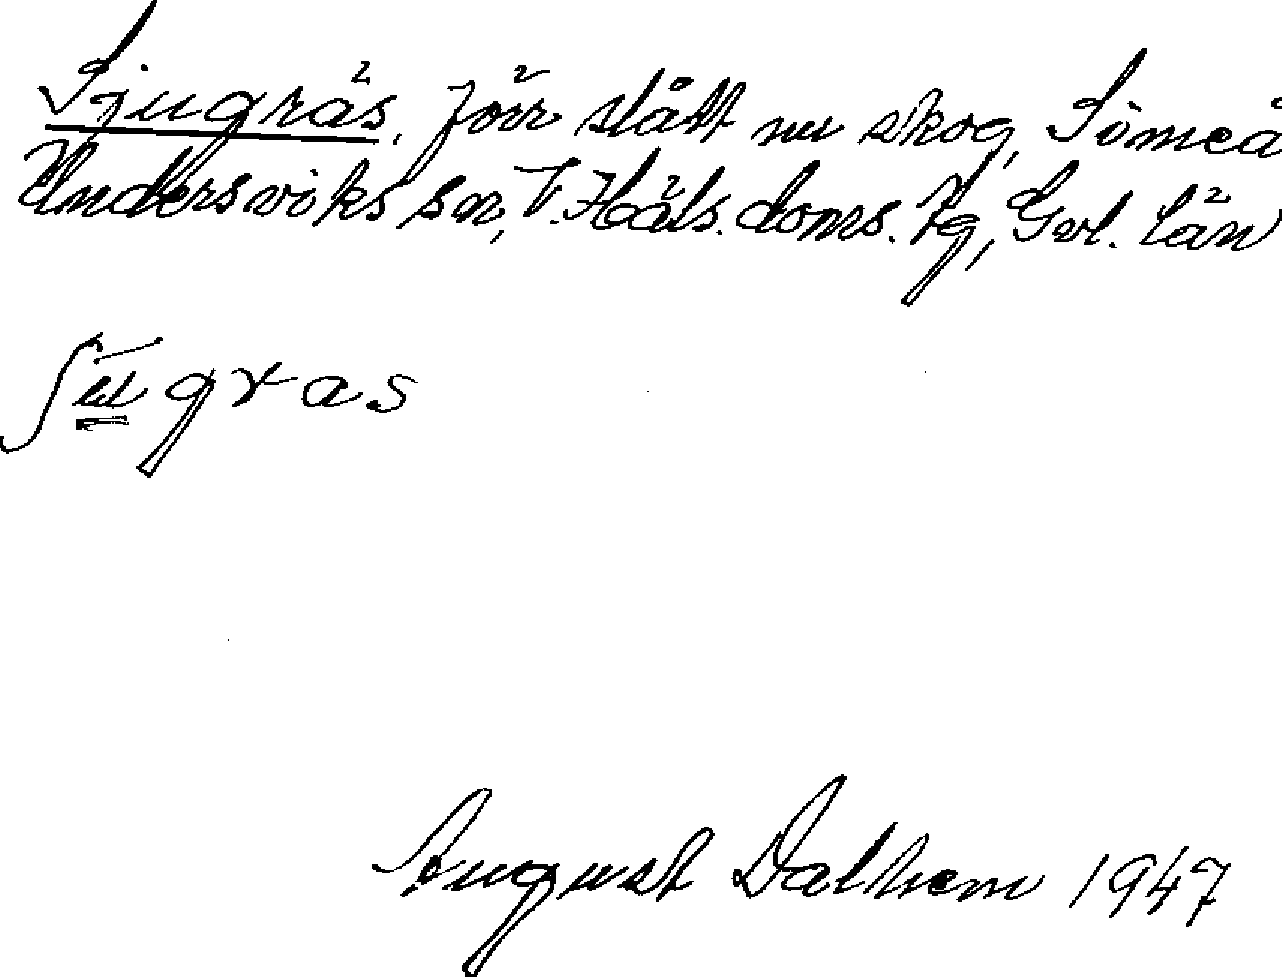 Sjugräs, förr slått nu skog, Sömeå
Undersviks sn, V. Häls. doms. hg, Gvl. län
ʃu̳gras
August Dalhem 1947